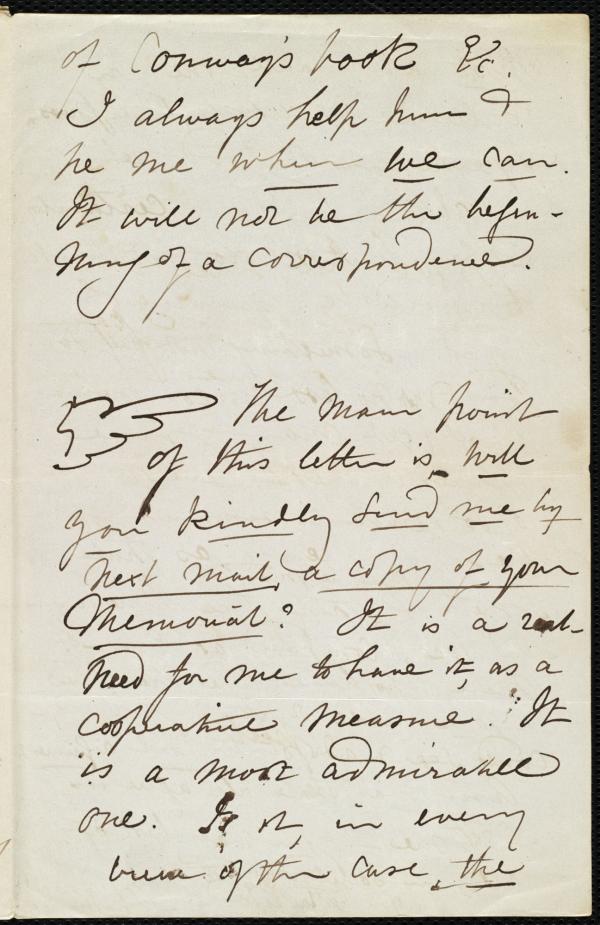 of Conway's book &c.
I always help him &
he me when we can.
It will not be the begin-
ning of a correspondence.
The main point
of this letter is, will
you kindly send me by
next mail, a copy of your
Memorial? It is a real
need for me to have it, as a
cooperative measure. It
is a most admirable
one. Is it, in every
view of the case, the